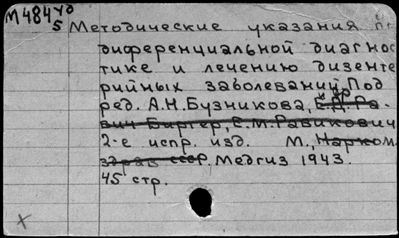 М484уд
5 Методические указания по
диференциальной диагнос
тике и лечению дизенте
рийных заболеваний Под
ред. А.Н. Бузникова, Е.Д. Ра-
вич-Биргер, Е.М. Равикович
2-е испр. изд. М., Нарком
здрав ссср, Медгиз 1943.
45 стр.